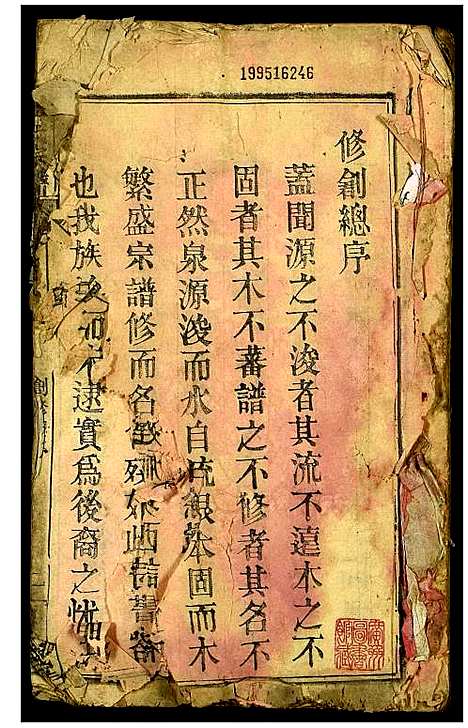 199516246
修創總序
蓋聞源之不浚者其流不遠木之不
固者其木不蕃譜之不修者其名不
正然泉源浚而水自流根本固而木
繁盛宗譜修而名
也我族 不逮實爲後裔之